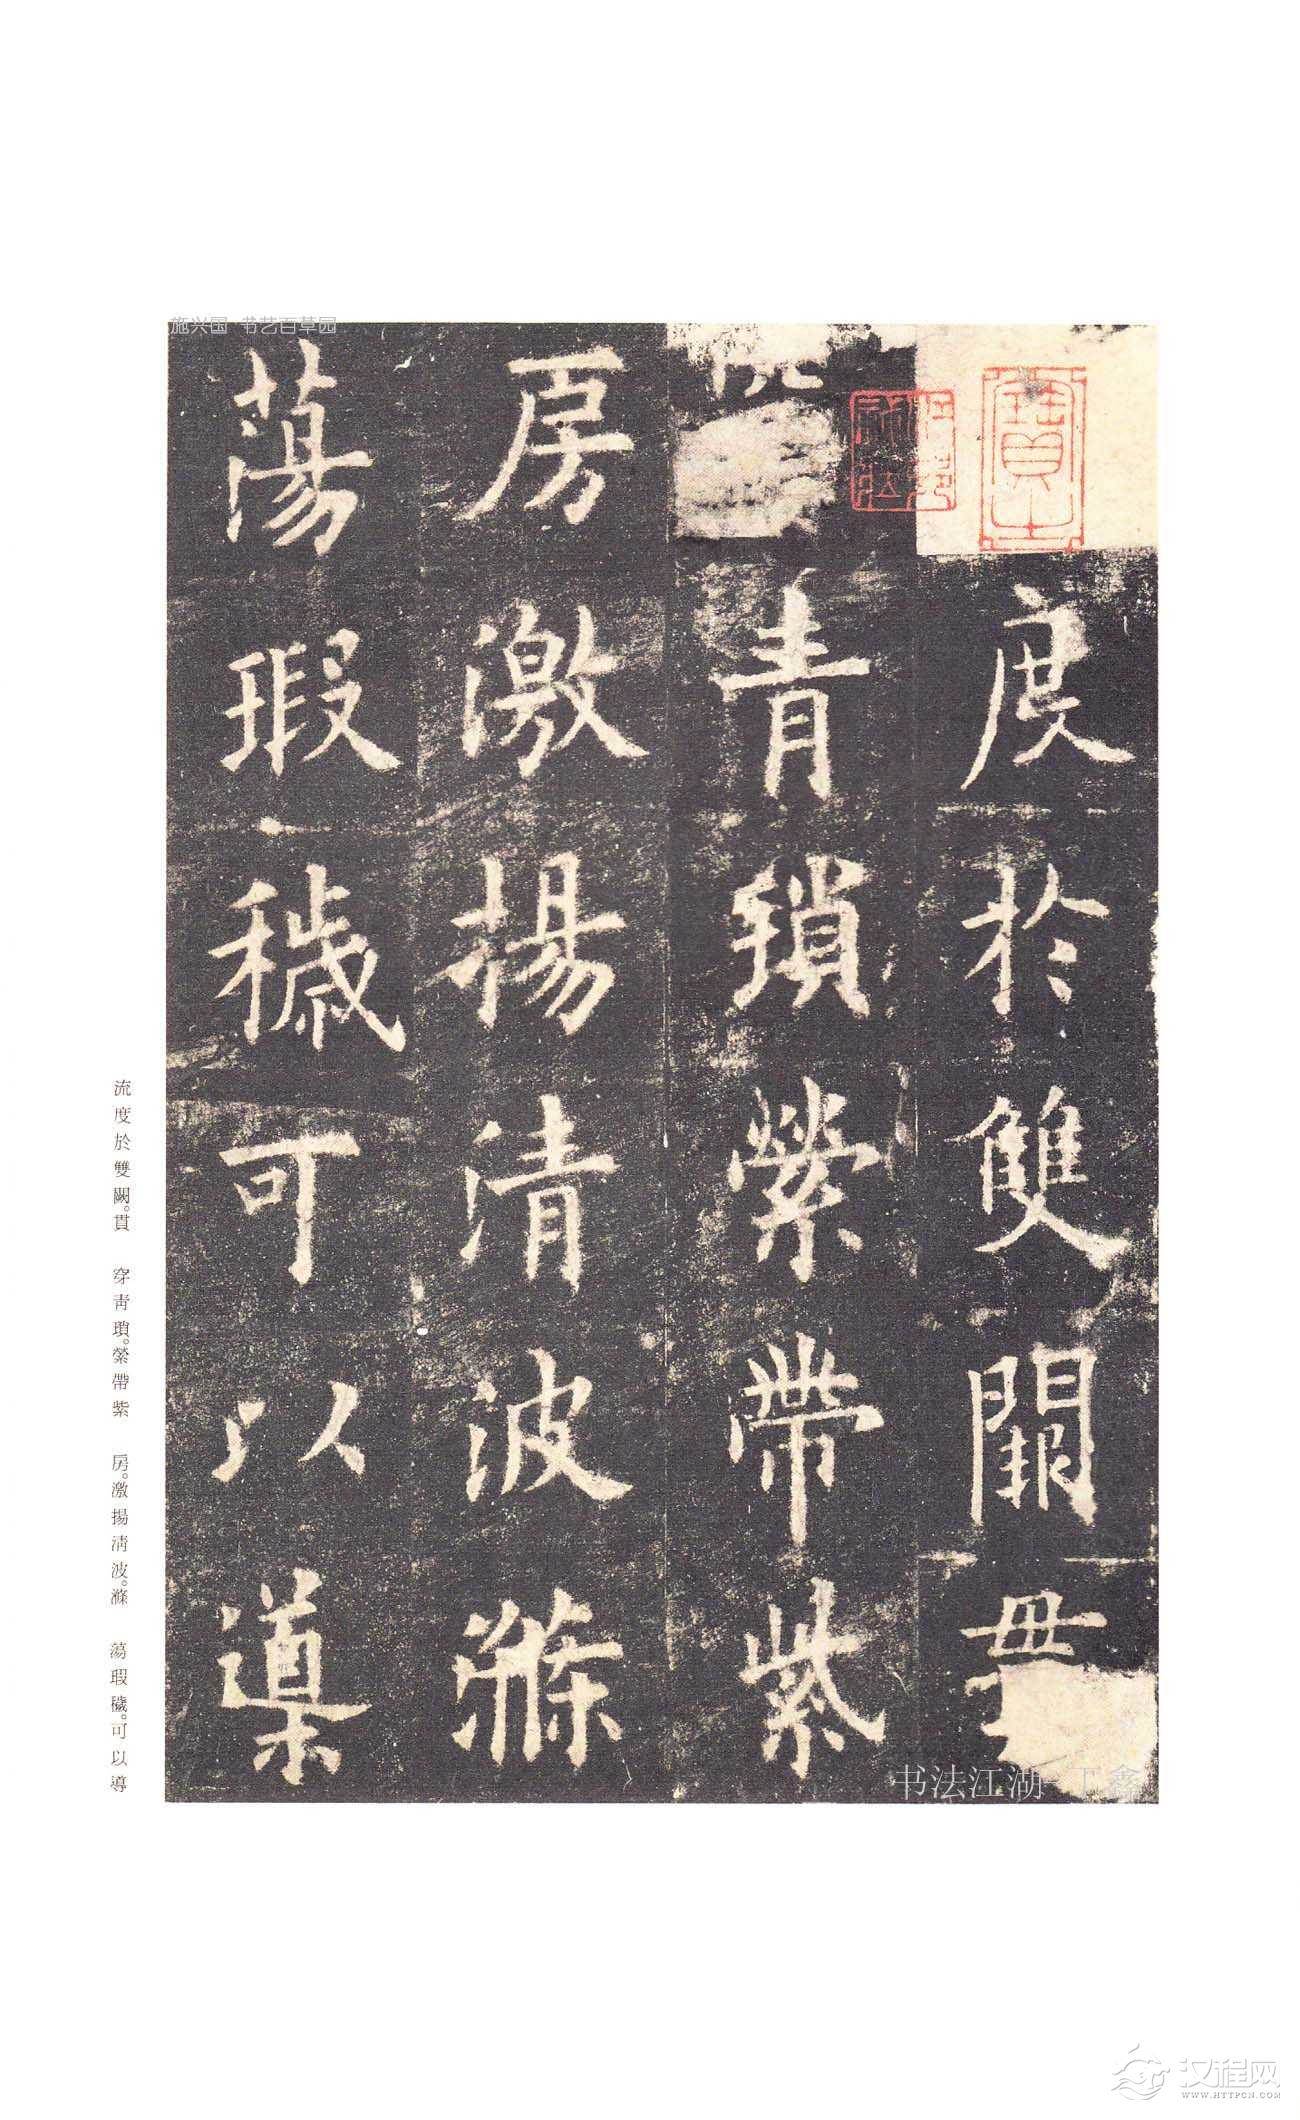 度於雙闕貫
青瑣縈帶紫
房激揚清波滌
蕩瑕穢可以導
流度於雙闕。貫 穿青瑣。縈帶紫 房。激揚清波。滌 蕩瑕穢。可以導
施兴国 书艺百草园
书法江湖 丁鑫
汉程网
WWW.HTTPCN.COM